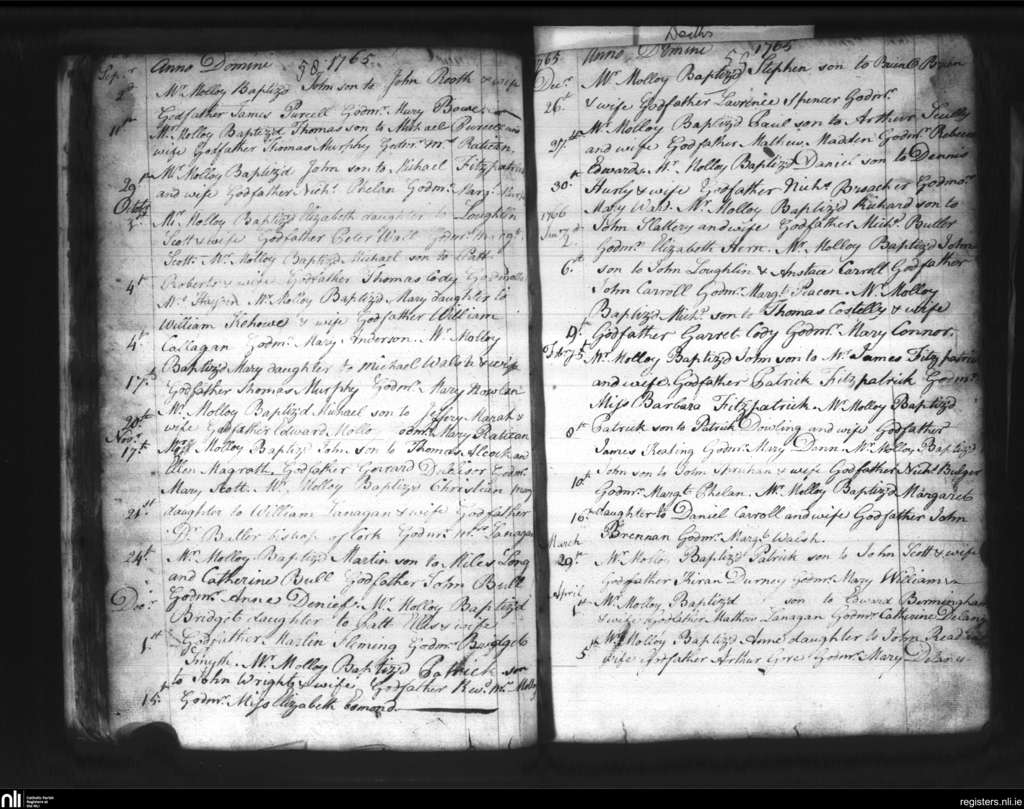 Anno Domini 58 1765.
Sepr. 2d Mr. Molloy Baptiz'd John son to John Rooth & wife
Godfather James Purcell Godmr. Mary Bowe
Mr. Molloy Baptiz'd Thomas son to Michael Purcell and
wife Godfather Thomas Murphy Godmr. Mrs. Ratican
29th Mr. Molloy Baptiz'd John son to Michael Fitzpatrick
and wife Godfather Nichs. Phelan Godmr. Margt.
Octobr. 2d Mr. Molloy Baptiz'd Elizabeth daughter to Loughlin
Scott & wife Godfather Peter Walt Godmr. Margt.
Scott. Mr. Molloy Baptiz'd Michael son to Patt.
4th Roberts & wife Godfather Thomas Cody Godmother
Mr. Molloy Baptiz'd Mary daughter to
William Kehowe & wife Godfather William
4th Callagan Godmr. Mary Anderson. Mr. Molloy
Baptiz'd Mary daughter to Michael Walsh & wife
17th Godfather Thomas Murphy Godmr. Mary Nowlan
20th Mr. Molloy Baptiz'd Michael son to Jeffery Marah &
Novr. wife Godfather Edward Godmr. Mary Ratican
17th Mr. Molloy Baptiz'd John son to Thomas Alcock and
Ellen Magrath Godfather Gerrard Godmr.
Mary Scott. Mr. Molloy Baptiz'd Christian
21st daughter to William Lanagan & wife Godfather
Dr. Butler bishop of Cork Godmr. Lanagan
24th Mr. Molloy Baptiz'd Martin son to Miles Long
and Catherine Bull Godfather John Bull
Godmr. Anne Denief. Mr. Molloy Baptiz'd
Decr. Bridget daughter to Patt Ellis & wife
1st Godfather Martin Fleming Godmr. Bridget
Smyth. Mr. Molloy Baptiz'd Patrick son
to John Wright & wife, Godfather Revd. Mr. Molloy
15th Godmr. Miss Elizabeth Esmond.
Deaths
1765 Anno Domini 59 1765
Decr. Mr. Molloy Baptiz'd Stephen son to
26th & wife Godfather Laurence Spencer Godmr.
Mr. Molloy Baptiz'd Paul son to Arthur Scully
29th and wife Godfather Mathew Madden Godmr. Rebecca
Edwards. Mr. Molloy Baptiz'd Daniel son to Dennis
30th Hurly & wife Godfather Nichs. Broacher Godmor.
Mary Walsh. Mr. Molloy Baptiz'd Richard son to
1766 Janry. 2d John Slattery and wife Godfather Michs. Butler
Godmr. Elizabeth Hern. Mr. Molloy Baptiz'd John
6th son to John Loughlin & Anstace Carroll Godfather
John Carroll Godmr. Margt. Mr. Molloy
Baptiz'd Michs. son to Thomas Costelly & wife
Godfather Garret Cody Godmr. Mary Connor.
5th Mr. Molloy Baptiz'd John son to Mr. James Fitzpatrick
and wife, Godfather Patrick Fitzpatrick Godmr.
Miss Barbara Fitzpatrick. Mr. Molloy Baptiz'd
8th Patrick son to Patrick Dowling and wife Godfather
James Realing Godmr. Mary Dann. Mr. Molloy Baptiz'd
John son to John Shruhan & wife Godfather Nichs. Bulger
10th Godmr. Margt. Phelan. Mr. Molloy Baptiz'd Margaret
16th daughter to Daniel Carroll and wife Godfather John
March Brennan Godmr. Margt. Walsh.
29th Mr. Molloy Baptiz'd Patrick son to John Scott & wife
Godfather Kiran Durney Godmr. Mary Williams
April 1st Mr. Molloy Baptiz'd son to Edward Bermingham
& wife Godfather Mathew Lanagan Godmr. Catherine Delany
5th Mr. Molloy Baptiz'd Anne daughter to John Read
wife Godfather Arthur Godmr. Mary Delany
nli Catholic Parish Registers at the NLI
registers.nli.ie